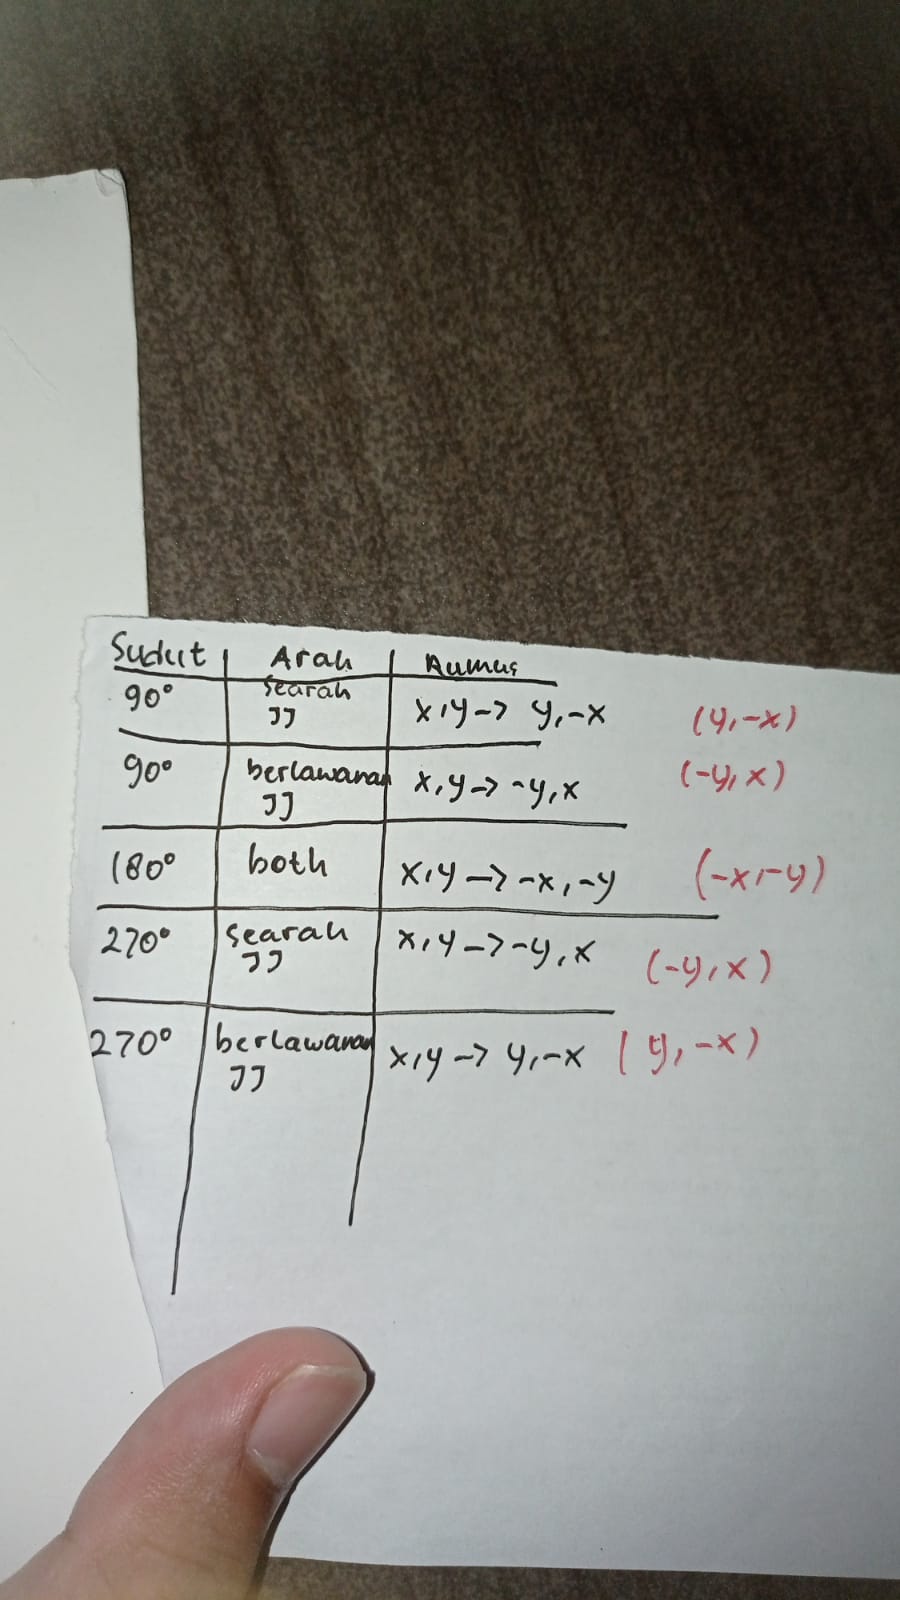 Sudut Arah Rumus
90° searah JJ x,y -> y,-x (y,-x)
90° berlawanan JJ x,y -> -y,x (-y,x)
180° both x,y -> -x,-y (-x,-y)
270° searah JJ x,y -> -y,x (-y,x)
270° berlawanan JJ x,y -> y,-x (y,-x)